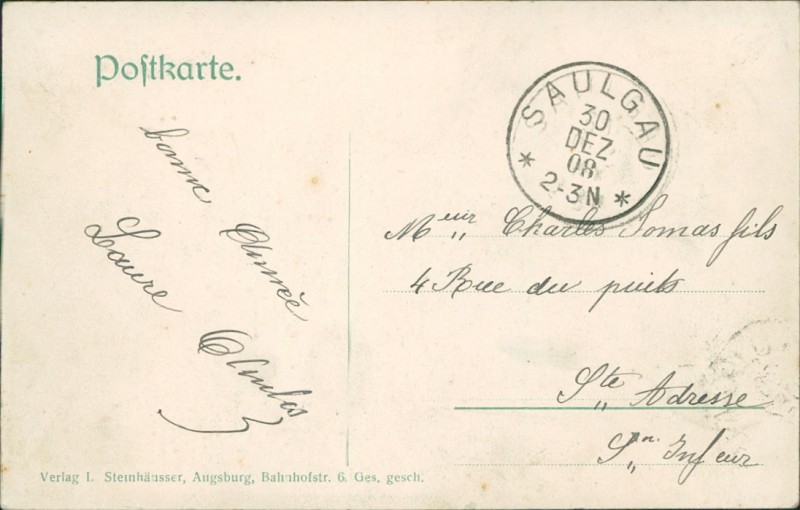 Postkarte.
SAULGAU
30
DEZ
08
2-3N
bonne Année
Laure
Meur Charles Tomas fils
4 Rue du puits
Ste Adresse
Sne Infeur
Verlag L. Steinhäusser, Augsburg, Bahnhofstr. 6. Ges. gesch.